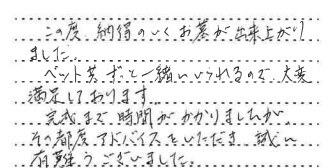 この度、納得のいくお墓が出来上がり
ました。
ペット共、ずっと一緒にいられるので、大変
満足しております。
完成まで時間がかかりましたが、
その都度アドバイスをいただき、誠に
有難うございました。